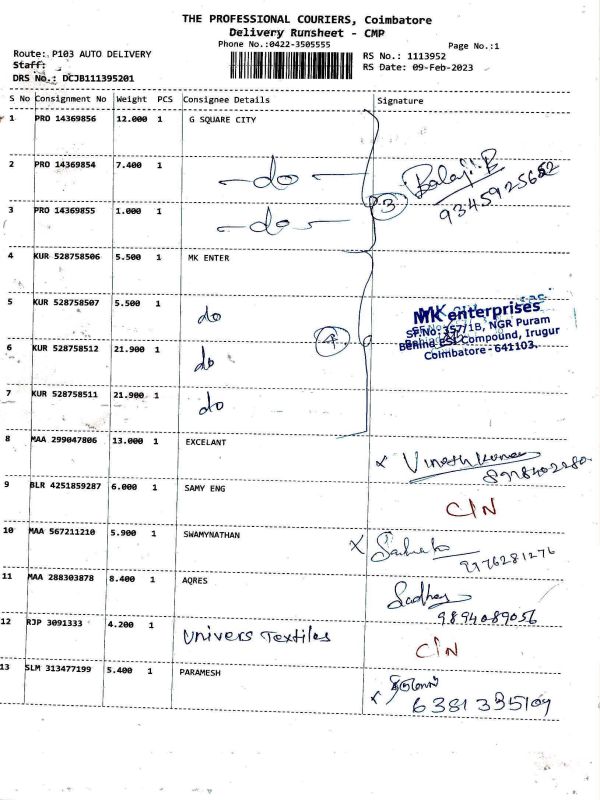 THE PROFESSIONAL COURIERS, Coimbatore
Delivery Runsheet - CMP
Phone No.:0422-3505555
Page No.:1
Route: P103 AUTO DELIVERY
RS No.: 1113952
Staff:
RS Date: 09-Feb-2023
DRS No.: DCJB111395201
S No Consignment No Weight PCS Consignee Details Signature
1 PRO 14369856 12.000 1 G SQUARE CITY
2 PRO 14369854 7.400 1 -do-
Balaji.B
9345925652
3 PRO 14369855 1.000 1 -do- 3
4 KUR 528758506 5.500 1 MK ENTER
5 KUR 528758507 5.500 1 do
MK enterprises
SF.No: 357/1B, NGR Puram
Behind ESI Compound, Irugur
Coimbatore - 641103.
6 KUR 528758512 21.900 1 do 4
7 KUR 528758511 21.900 1 do
8 MAA 299047806 13.000 1 EXCELANT Vinoth Kumar
9 BLR 4251859287 6.000 1 SAMY ENG C/N
10 MAA 567211210 5.900 1 SWAMYNATHAN
9976281276
11 MAA 288303878 8.400 1 AQRES
9894089056
12 RJP 3091333 4.200 1 Univers Textiles C/N
13 SLM 313477199 5.400 1 PARAMESH
6381335109